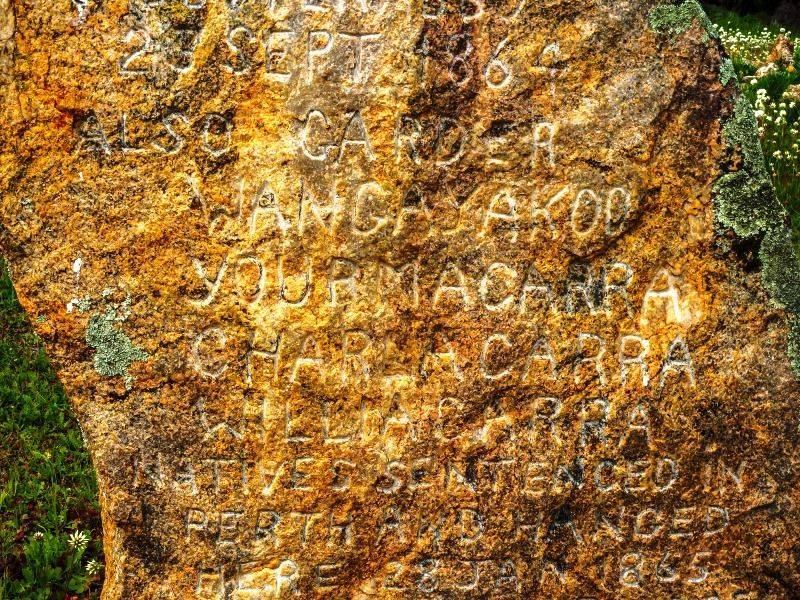 23 SEPT 1864
ALSO GARDER
WANGAYAKOO
YOURMACARRA
CHARLACARRA
WILLIACARRA
NATIVES SENTENCED IN
PERTH AND HANGED
HERE 28 JAN 1865